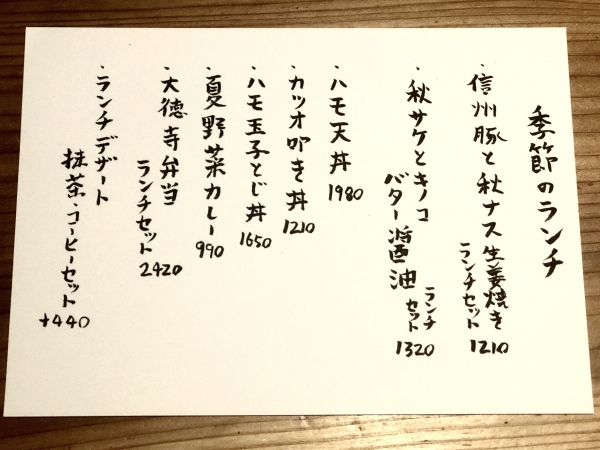 季節のランチ
・信州豚と秋ナス生姜焼き
ランチセット 1210
・秋サケとキノコ
バター醤油
ランチ
セット
1320
・ハモ天丼 1980
・カツオ叩き丼 1210
・ハモ玉子とじ丼 1650
・夏野菜カレー 990
・大徳寺弁当
ランチセット 2420
・ランチデザート
抹茶・コーヒーセット
+440